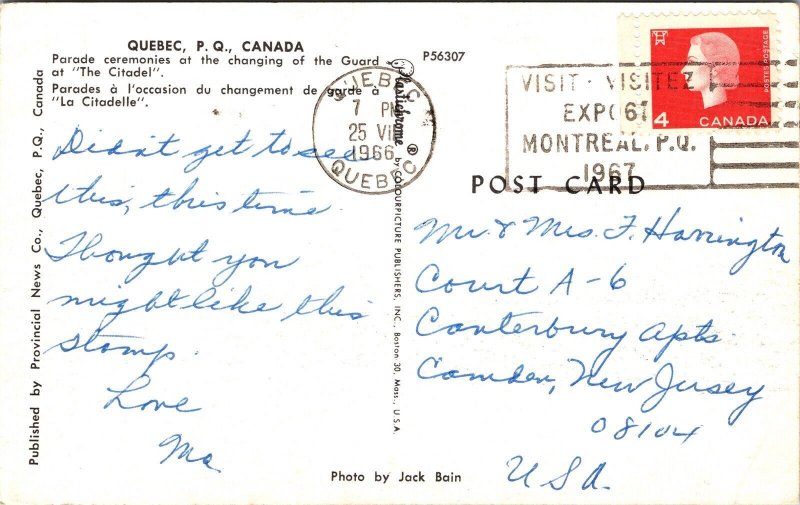 QUEBEC, P. Q., CANADA
Parade ceremonies at the changing of the Guard
at "The Citadel".
Parades à l'occasion du changement de garde à
"La Citadelle".
P56307
Didn't get to see
this, this time.
Thought you
might like this
stamp.
Love
Ma
Published by Provincial News Co., Quebec, P. Q., Canada
Plastichrome ®
by COLOURPICTURE PUBLISHERS, INC., Boston 30, Mass., U.S.A.
QUEBEC
7 PM
25 VII
1966
QUEBEC
VISIT · VISITEZ
EXPO67
MONTREAL, P.Q.
1967
4
CANADA
POSTES POSTAGE
POST CARD
Mr. & Mrs. F. Harrington
Court A-6
Canterbury Apts.
Camden, New Jersey
08104
USA.
Photo by Jack Bain